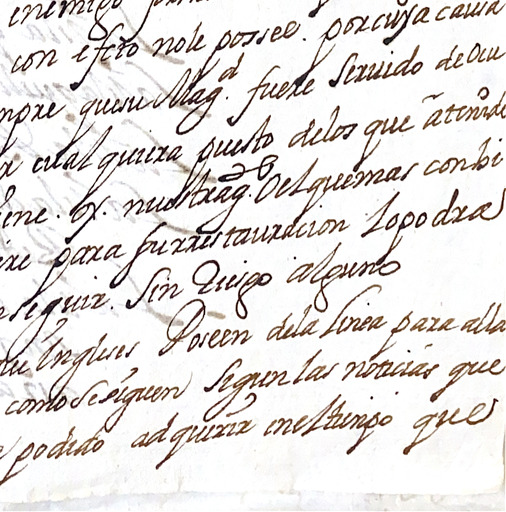 enemigo
con efeto nole possee. por cuya causa
mpre quesu Magd. fuere seruido de Ocu
r cualquiera puesto delos que
iene. nuestra deel quemas conbi
ere para su rrestauracion lopodra
nseguir. sin Riesgo alguno
Ingleses Poseen dela linea para alla
como Se siguen segun las noticias que
podido adquirir enel tiempo que